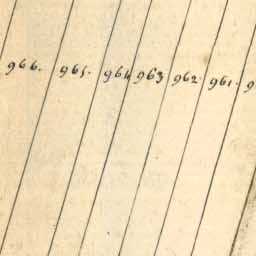 966. 965. 964 963 962. 961.